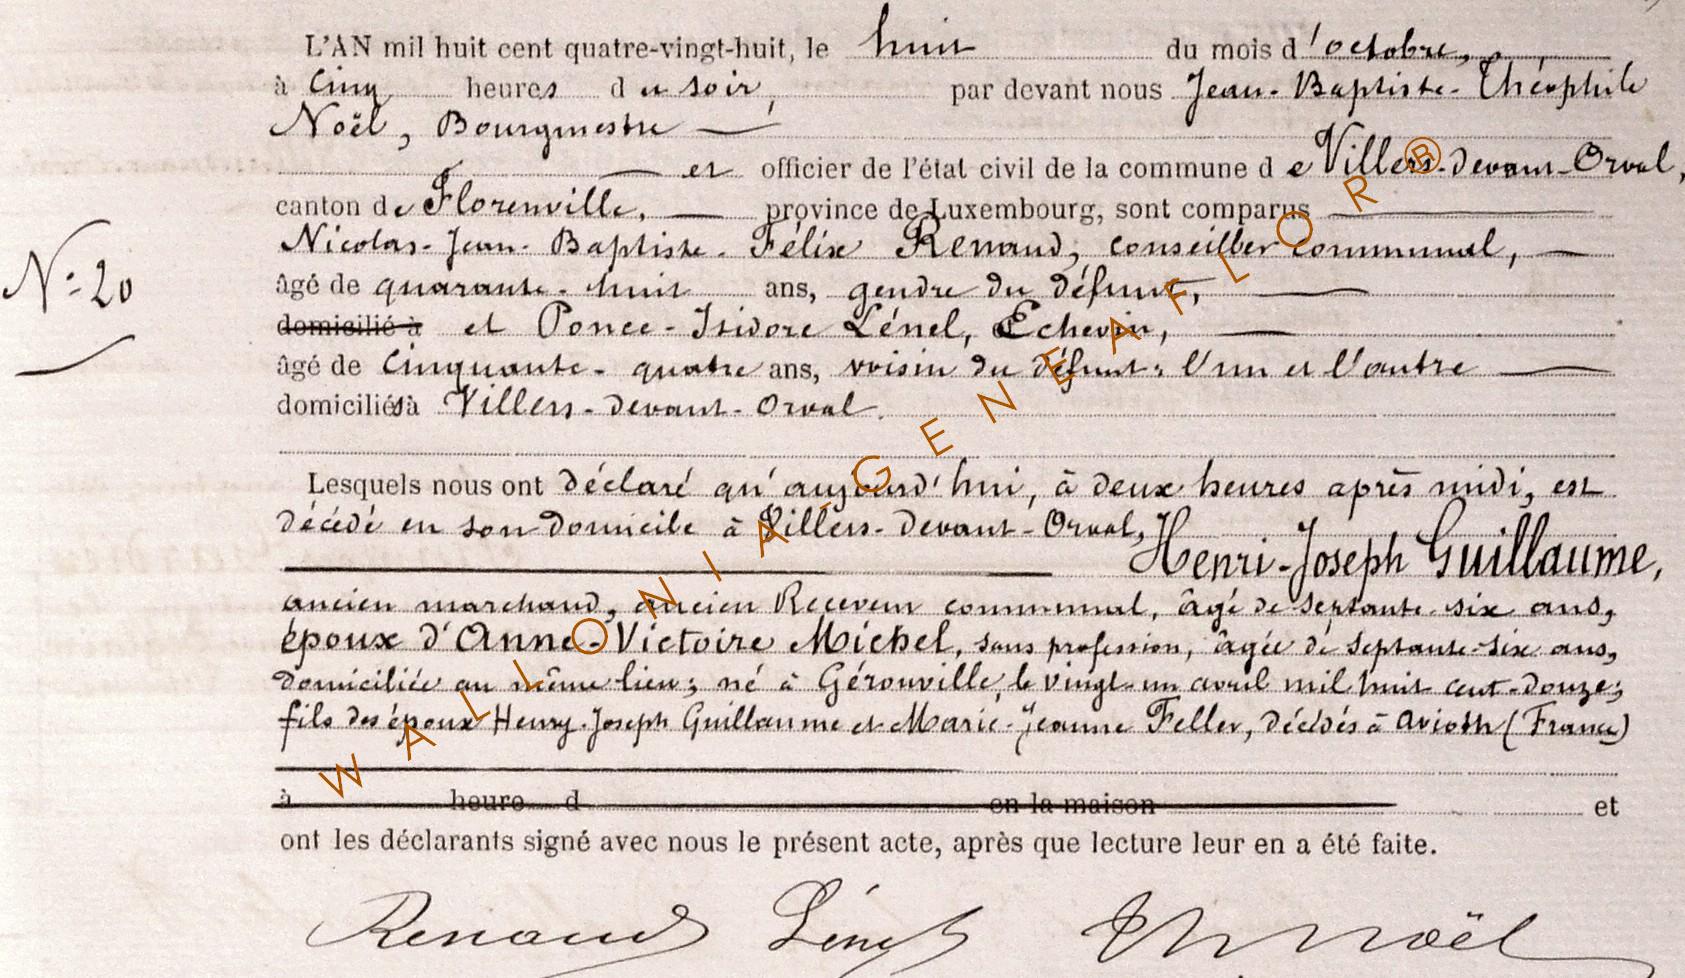 L'AN mil huit cent quatre-vingt-huit, le huit du mois d'octobre,
à Cinq heures du soir, par devant nous Jean-Baptiste-Théophile
Noël, Bourgmestre
et officier de l'état civil de la commune de Villers-devant-Orval,
canton de Florenville, province de Luxembourg, sont comparus
Nicolas-Jean-Baptiste-Félix Renaud, conseiller communal,
N° 20
âgé de quarante-huit ans, gendre du défunt,
domicilié à et Ponce-Isidore Lénel, Echevin,
âgé de Cinquante-quatre ans, voisin du défunt; l'un et l'autre
domiciliés à Villers-devant-Orval.
Lesquels nous ont déclaré qu'aujourd'hui, à deux heures après midi, est
décédé en son domicile à Villers-devant-Orval, Henri-Joseph Guillaume,
ancien marchand, ancien Receveur communal, âgé de septante-six ans,
époux d'Anne-Victoire Michel, sans profession, âgée de septante-six ans,
domiciliée au même lieu; né à Gérouville, le vingt-un avril mil huit cent-douze;
fils des époux Henry-Joseph Guillaume et Marie-Jeanne Feller, décédés à Avioth (France)
à heure d en la maison et
ont les déclarants signé avec nous le présent acte, après que lecture leur en a été faite.
Renaud Lénel Th Noël
WALLONIA-GENEAFLOR®